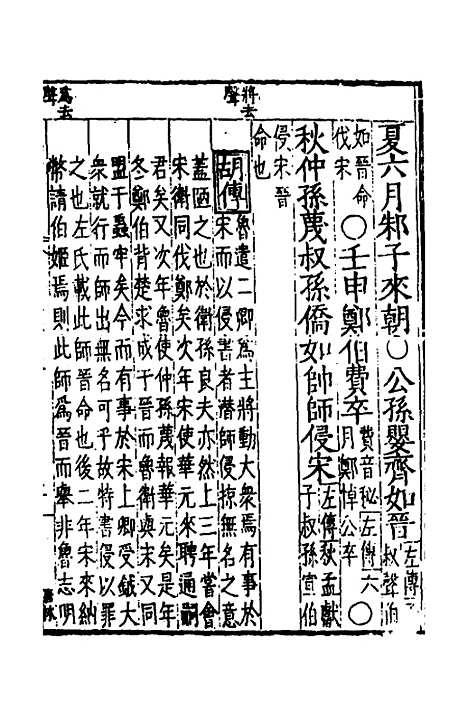 將去聲
為去聲
夏六月邾子來朝○公孫嬰齊如晉左傳子叔聲伯
如晉命伐宋○壬申鄭伯費卒費音秘左傳六月鄭悼公卒○
秋仲孫蔑叔孫僑如帥師侵宋左傳秋孟獻子叔孫宣伯
侵宋晉命也
胡傳魯遣二卿為主將動大衆焉有事於
宋而以侵書者潛師侵掠無名之意
蓋陋之也於衛孫良夫亦然上三年嘗會
宋衛同伐鄭矣次年宋使華元來聘通嗣
君矣又次年魯使仲孫蔑報華元矣是年
冬鄭伯背楚求成于晉而魯衛與宋又同
盟于蟲牢矣今而有事於宋上卿受鉞大
衆就行而師出無名可乎故特書侵以罪
之也左氏載此師晉命也後二年宋來納
幣請伯姬焉則此師為晉而舉非魯志明